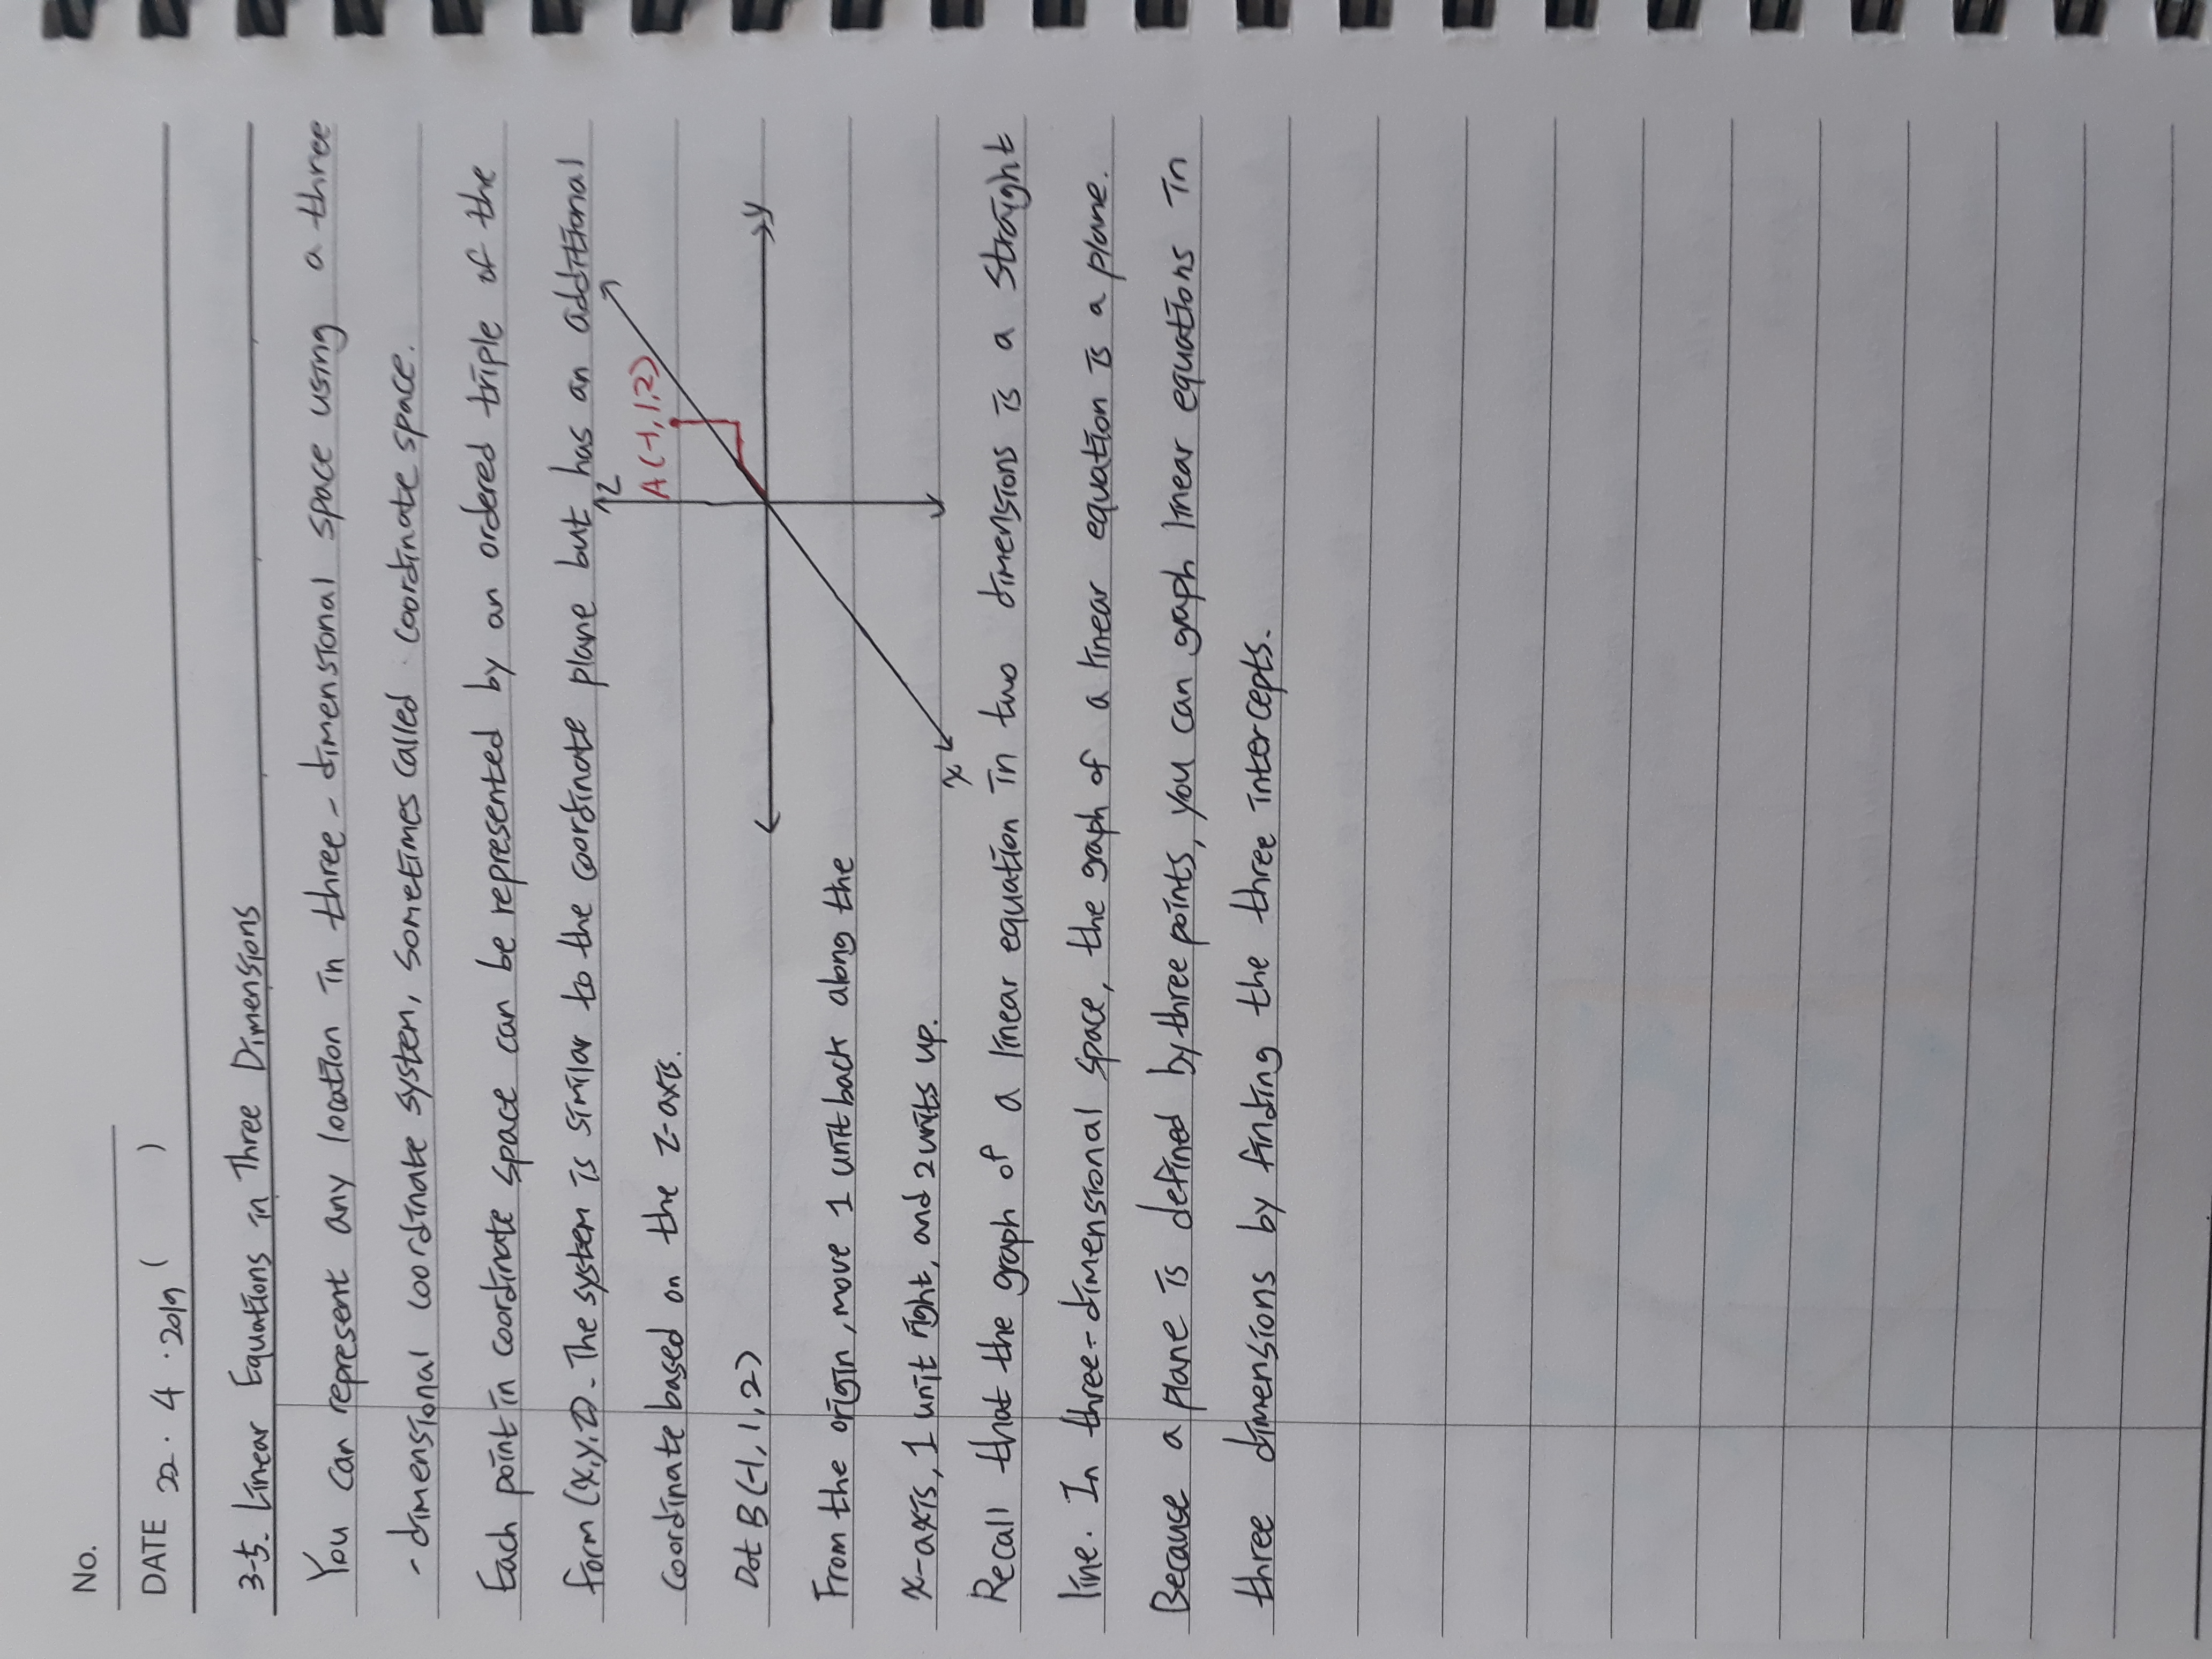 No.
DATE 22 . 4 . 2019 ( )
3-5. Linear Equations in Three Dimensions
You can represent any location in three - dimensional space using a three
- dimensional coordinate system, sometimes called coordinate space.
Each point in coordinate space can be represented by an ordered triple of the
form (x,y,z). The system is similar to the coordinate plane but has an additional
coordinate based on the z-axis.
z
A (-1, 1, 2)
y
x
Dot B (-1, 1, 2)
From the origin, move 1 unit back along the
x-axis, 1 unit right, and 2 units up.
Recall that the graph of a linear equation in two dimensions is a straight
line. In three-dimensional space, the graph of a linear equation is a plane.
Because a plane is defined by three points, you can graph linear equations in
three dimensions by finding the three intercepts.